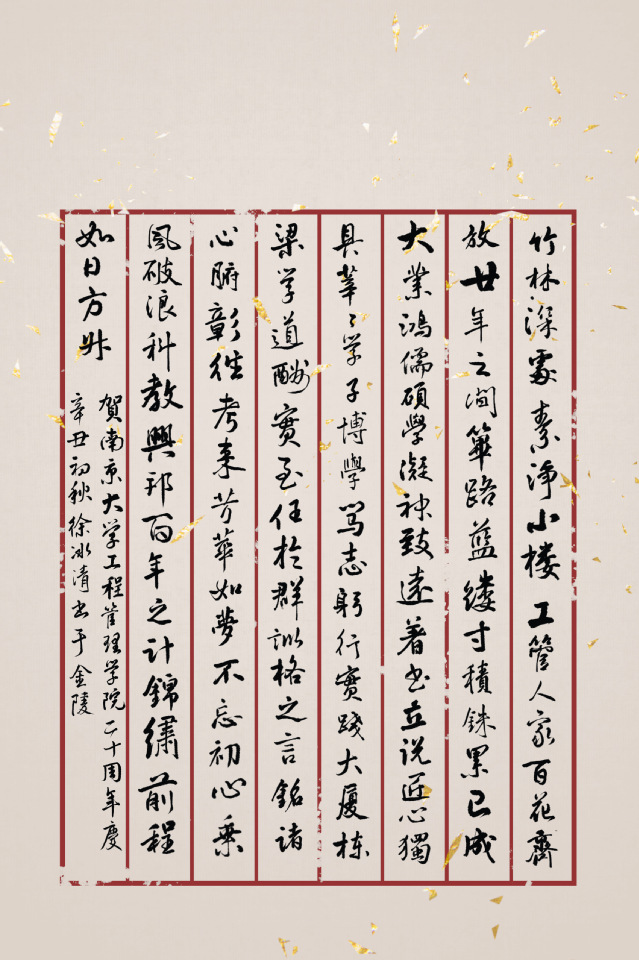 竹林深處素淨小楼工管人家百花齊
放廿年之间篳路蓝缕寸積銖累已成
大業鴻儒碩學凝神致遠著书立说匠心獨
具莘莘学子博學笃志躬行實踐大厦栋
梁学道酬實至任於群訓格之言銘諸
心腑彰往考来芳華如夢不忘初心乘
風破浪科教興邦百年之计錦绣前程
如日方升
賀南京大学工程管理学院二十周年慶
辛丑初秋徐冰清书于金陵